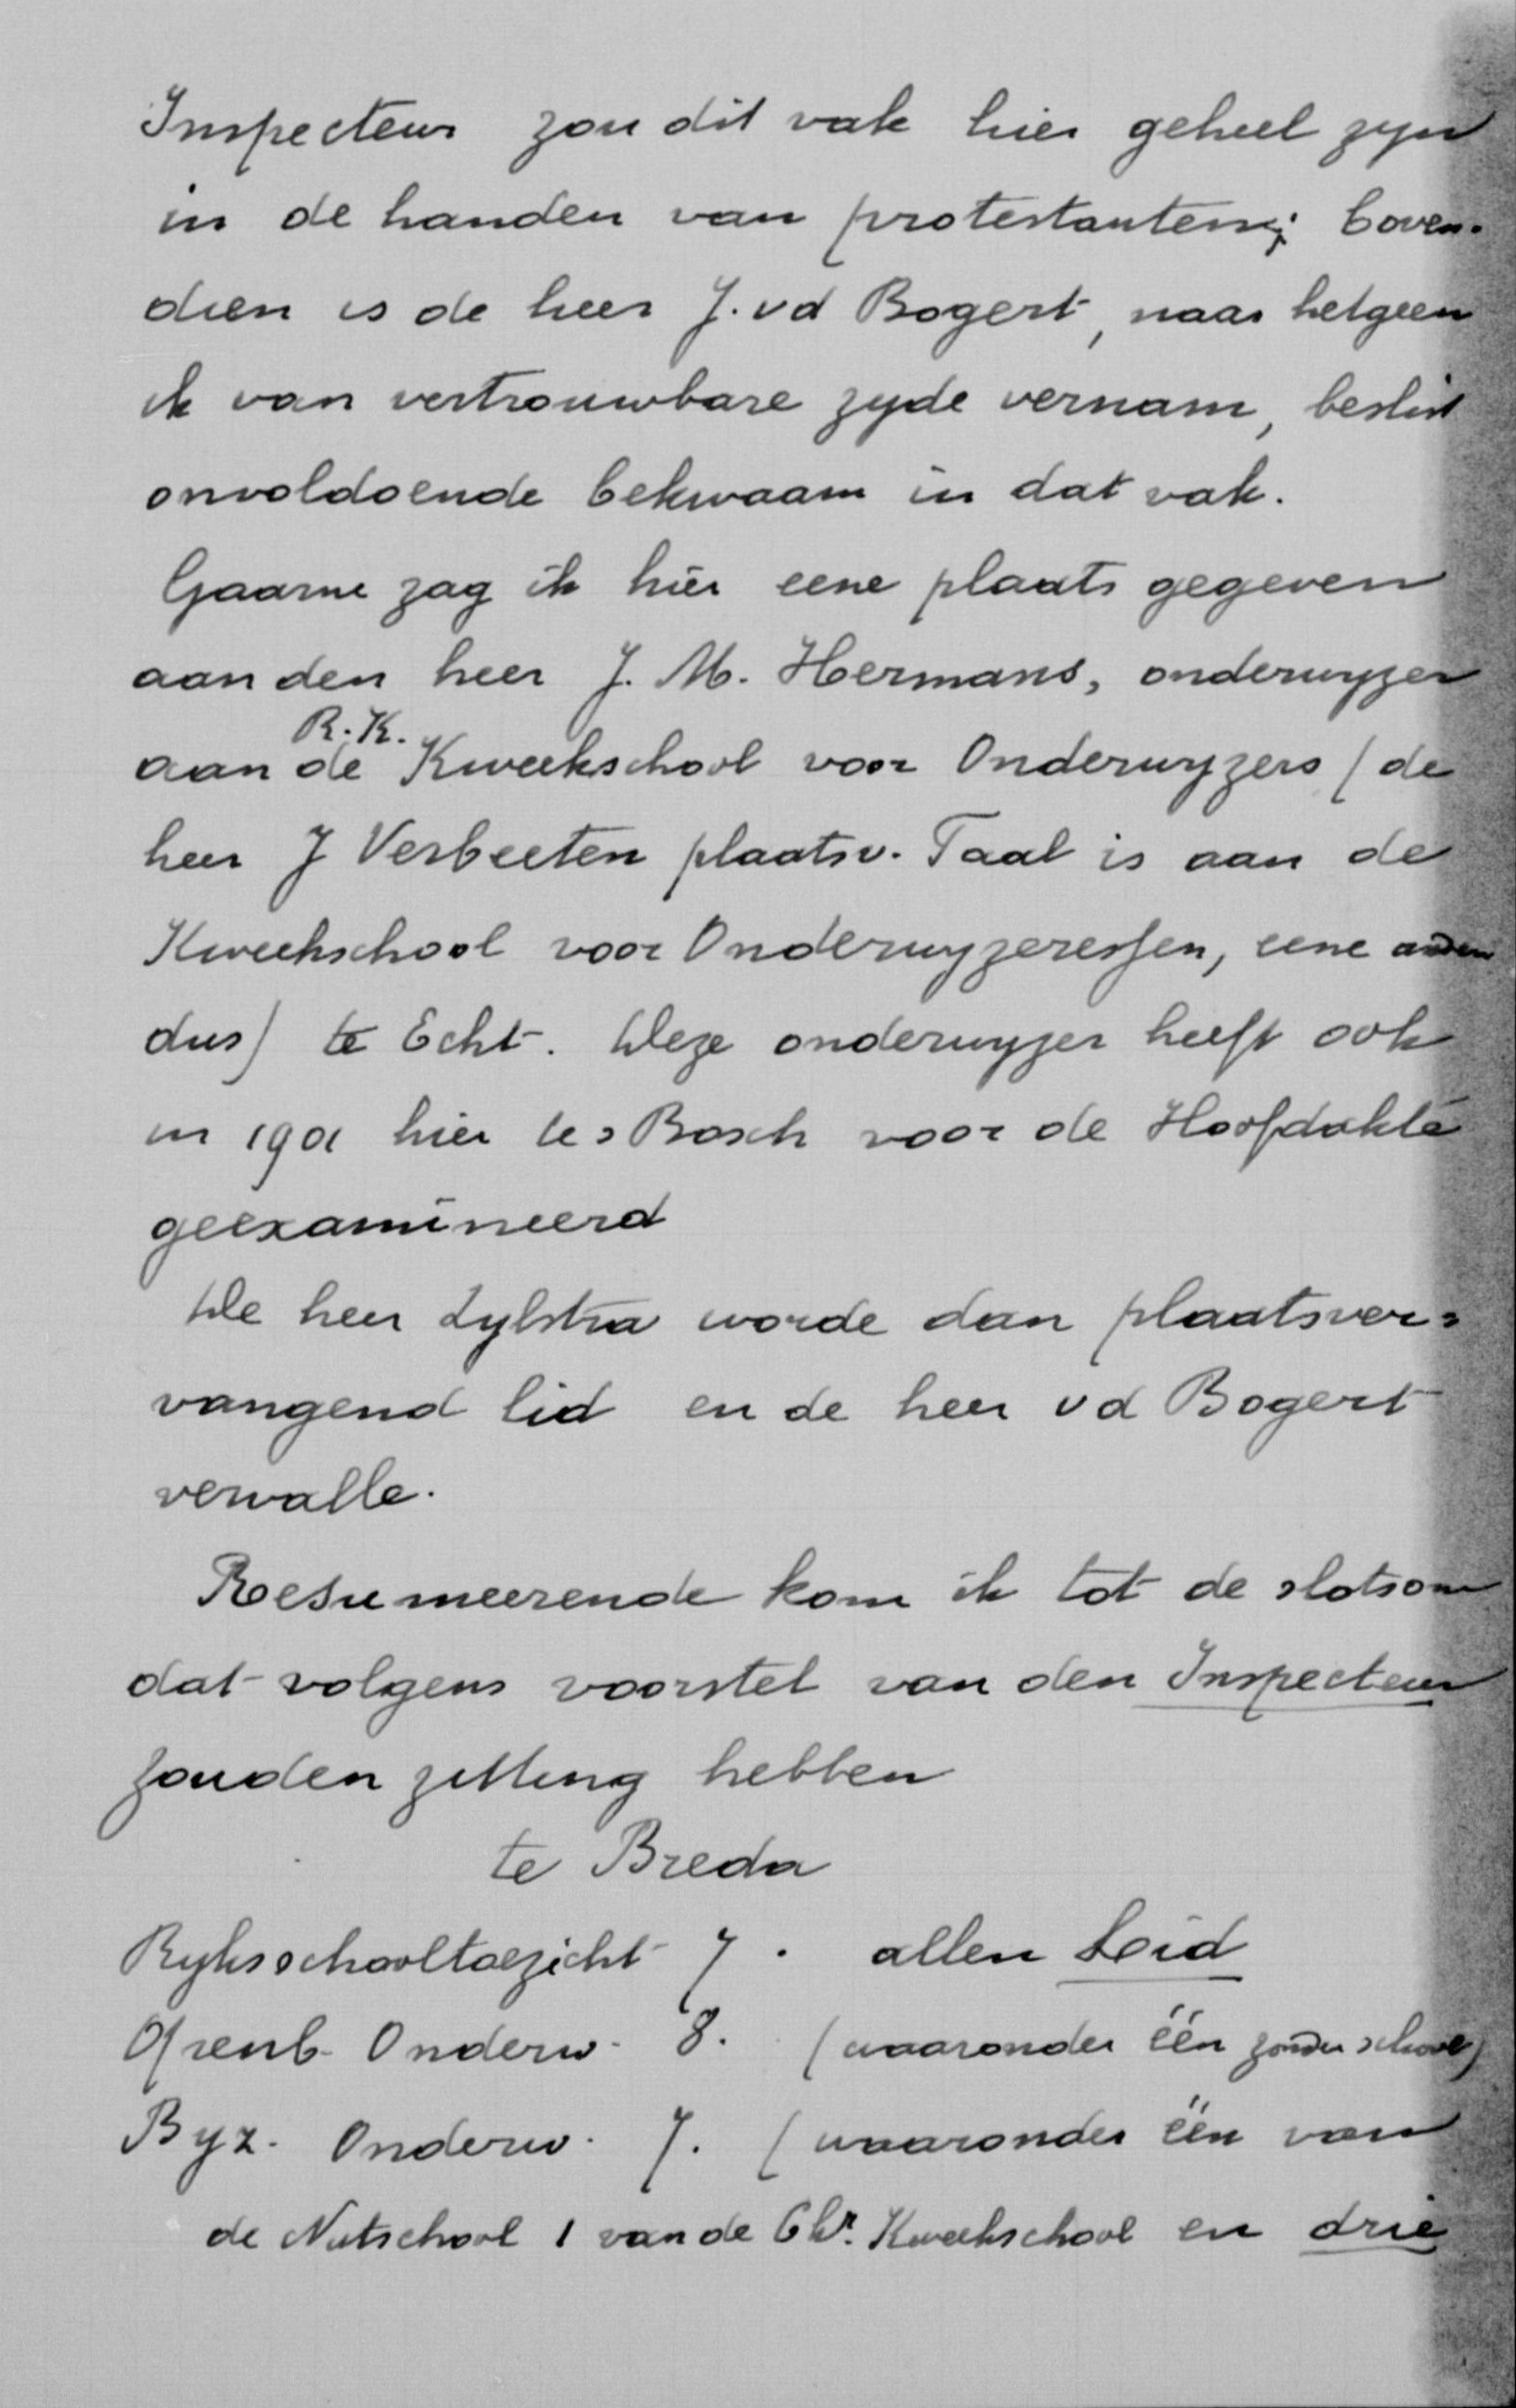 Inspecteur zou dit vak hier geheel zyn
in de handen van protestanten; boven-
dien is de heer J. vd Bogert, naar hetgeen
ik van vertrouwbare zyde vernam, beslist
onvoldoende bekwaam in dat vak.
Gaarne zag ik hier eene plaats gegeven
aan den heer J. M. Hermans, onderwyzer
R.K.
aan de Kweekschool voor Onderwyzers (de
heer J Verbeeten plaatsv. Taal is aan de
Kweekschool voor Onderwyzeressen, eene andere
dus) te Echt. Deze onderwyzer heeft ook
in 1901 hier te 's Bosch voor de Hoofdakte
geexamineerd
De heer Zylstra worde dan plaatsver=
vangend lid en de heer vd Bogert
vervalle.
Resumeerende kom ik tot de slotsom
dat volgens voorstel van den Inspecteur
zouden zitting hebben
te Breda
Ryksschooltoezicht 7. allen Lid
Openb. Onderw. 8. (waaronder één zonder school)
Byz. Onderw. 7. (waaronder één van
de Nutschool 1 van de Chr. Kweekschool en drie